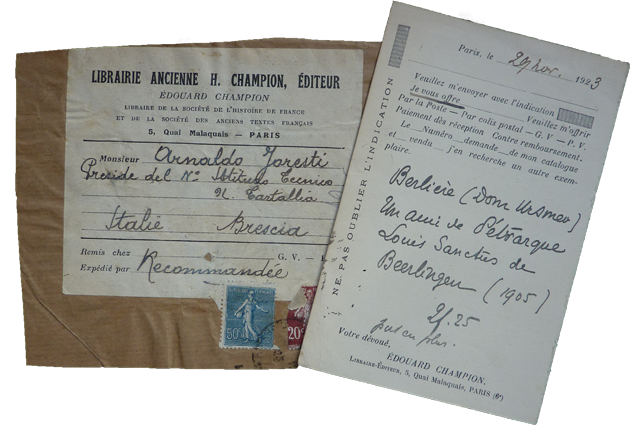 LIBRAIRIE ANCIENNE H. CHAMPION, ÉDITEUR
ÉDOUARD CHAMPION
LIBRAIRE DE LA SOCIÉTÉ DE L'HISTOIRE DE FRANCE
ET DE LA SOCIÉTÉ DES ANCIENS TEXTES FRANÇAIS
5, Quai Malaquais — PARIS
Monsieur Arnaldo Foresti
Preside del Istituto Tecnico
N. Tartallia
Italie Brescia
Remis chez G. V.
Expédié par Recommandée
50
20
Paris, le 29 nov. 1923
Veuillez m'envoyer avec l'indication
Je vous offre Veuillez m'offrir
Par la Poste - Par colis postal - G. V - P. V.
Paiement dès réception Contre remboursement.
Le Numéro demandé de mon catalogue
est vendu j'en recherche un autre exem-
plaire.
NE PAS OUBLIER L'INDICATION
Berlière (Dom Ursmer)
Un ami de Pétrarque
Louis Sanctus de
Beerlingen (1905)
2f. 25
Votre dévoué,
ÉDOUARD CHAMPION,
LIBRAIRE-ÉDITEUR, 5, Quai Malaquais, PARIS (6e)